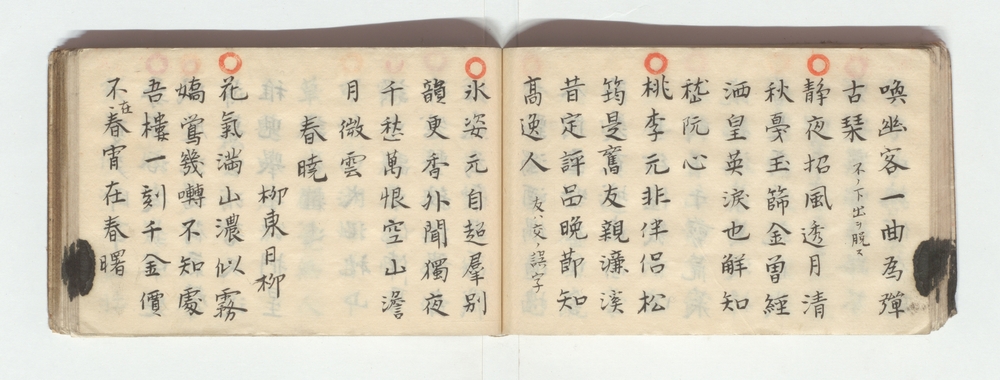 喚幽客一曲為彈
古琹 不ノ下出ヲ脱ス
静夜招風透月清
秋戞玉篩金曽經
洒皇英淚也解知
嵇阮心
桃李元非伴侶松
筠是舊友親濂溪
昔定評品晩節知
髙逸人 友ハ交ノ誤字
氷姿元自超羣別
韻更香外聞獨夜
千愁萬恨空山澹
月微雲
春暁
柳東日柳
花氣満山濃似霧
嬌鶯幾囀不知處
吾樓一刻千金價
不在春宵在春曙